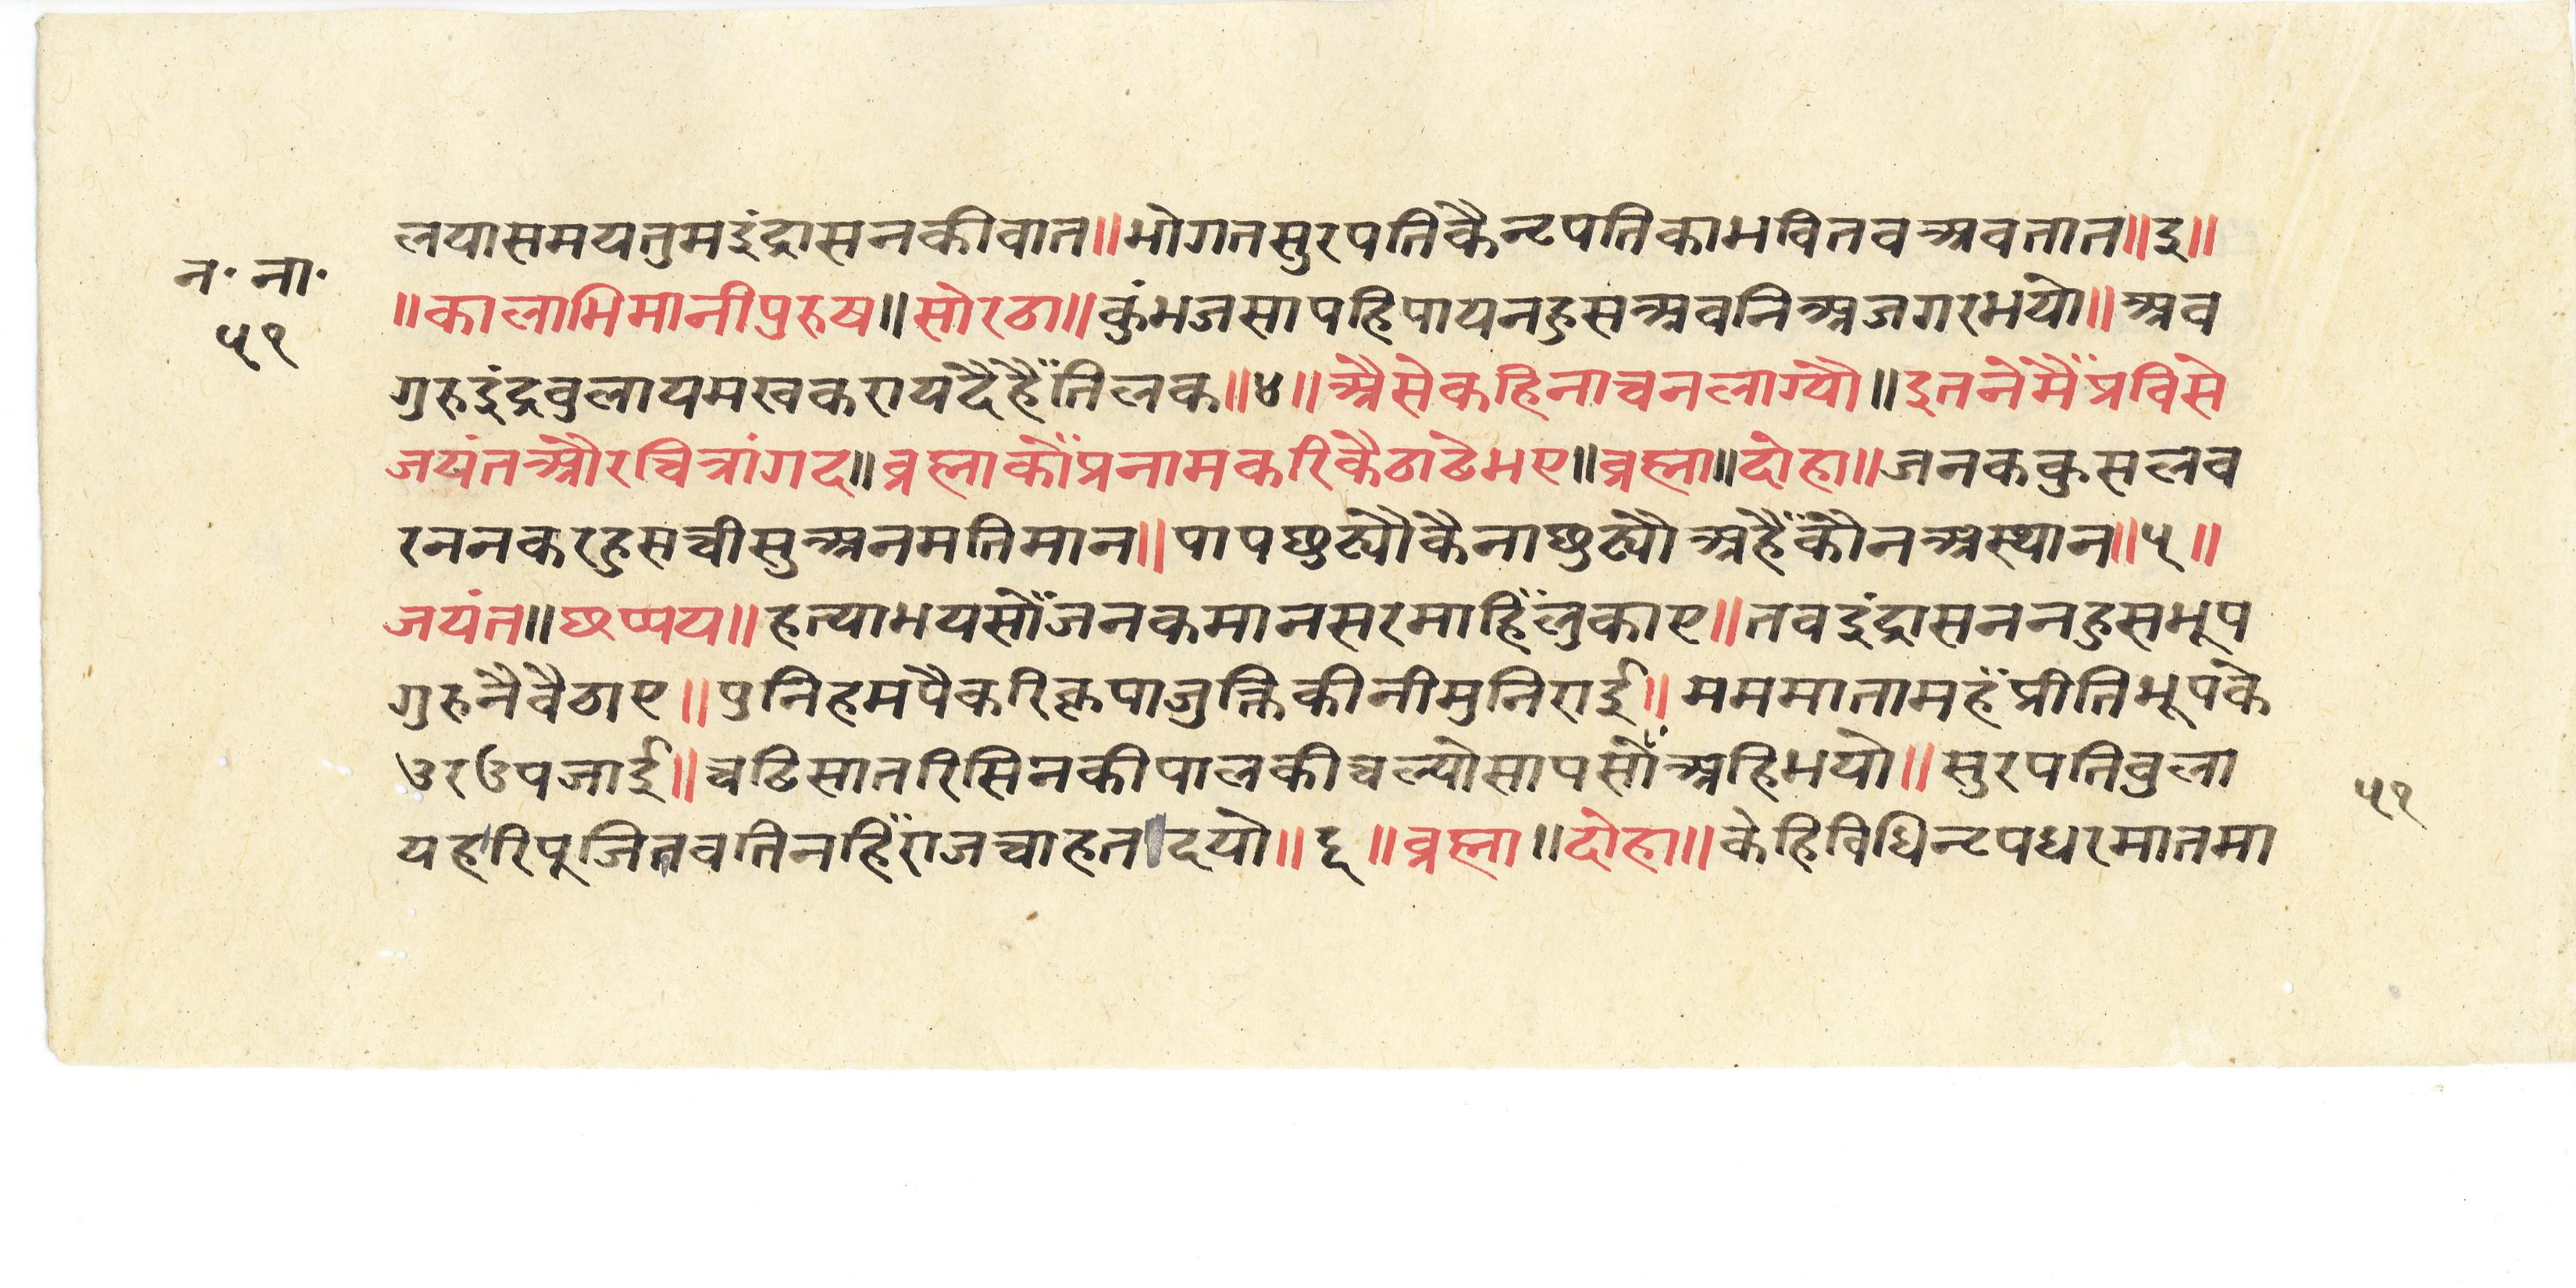 लयासमयतुमइंद्रासनकीवात॥भोगतसुरपतिकैन्टपतिकाभवितवअवतात॥३॥
न॰ ना॰
॥कालाभिमानीपुरुष॥सोरठा॥कुंभजसापहिपायनहुसअवनिअजगरभयो॥अव
५१
गुरुइंद्रवुलायमखकरायदैहैँतिलक॥४॥अैसेकहिनाचनलाग्यौ॥इतनेंमैँप्रविसे
जयंतऔरचित्रांगद॥व्रह्माकौँप्रनामकरिकैठाढेभए॥व्रह्मा॥दोहा॥जनककुसलव
रननकरहुसचीसुअनमतिमान॥पापछुट्यौकैनाछुट्यौअहैँकौनअस्थान॥५॥
जयंत॥छप्पय॥हत्याभयसौँजनकमानसरमाहिँलुकाए॥तवइंद्रासननहुसभूप
गुरुनैवैठाए॥पुनिहमपैकरिकृपाजुक्तिकीनीमुनिराई॥मममातामहँप्रीतिभूपके
उरउपजाई॥चढिसातरिसिनकीपालकीचल्योसापसौँअहिभयो॥सुरपतिवुला
५१
यहरिपूजितवतिनहिँराजचाहतदयो॥६॥व्रह्मा॥दोहा॥केहिविधिन्टपधरमातमा